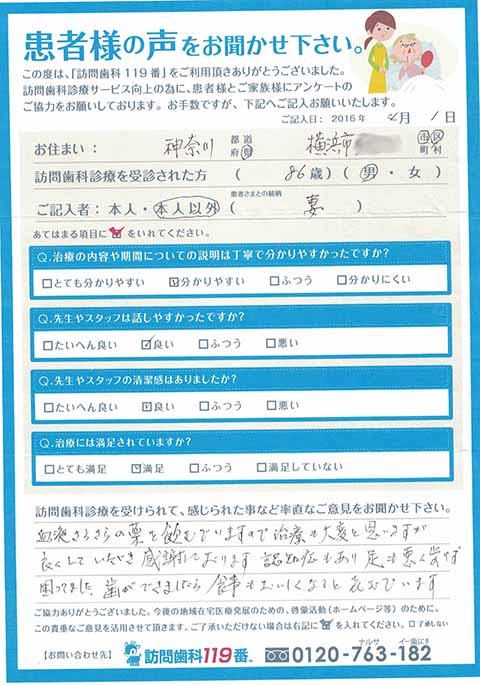 患者様の声をお聞かせ下さい。
この度は、「訪問歯科119番」をご利用頂きありがとうございました。
訪問歯科診療サービス向上の為に、患者様とご家族様にアンケートの
ご協力をお願いしております。お手数ですが、下記へご記入お願いいたします。
ご記入日： 2016年 月 1日
お住まい： 神奈川 都道府県 横浜市 市区町村
訪問歯科診療を受診された方 ( 86歳 ) ( 男・女 )
患者さまとの続柄
ご記入者：本人・本人以外 ( 妻 )
あてはまる項目に☑をいれてください。
Q.治療の内容や期間についての説明は丁寧で分かりやすかったですか？
□とても分かりやすい ☑分かりやすい □ふつう □分かりにくい
Q.先生やスタッフは話しやすかったですか？
□たいへん良い ☑良い □ふつう □悪い
Q.先生やスタッフの清潔感はありましたか？
□たいへん良い ☑良い □ふつう □悪い
Q.治療には満足されていますか？
□とても満足 ☑満足 □ふつう □満足していない
訪問歯科診療を受けられて、感じられた事など率直なご意見をお聞かせ下さい。
血液さらさらの薬を飲んでいますので治療も大変と思いますが
良くしていただき感謝しております 認知症もあり 足も悪く
困ってました 歯ができましたら 食事もおいしくなると 思います
ご協力ありがとうございました。今後の地域在宅医療発展のため、啓蒙活動（ホームページ等）のために、
この貴重なご意見を活用させて頂きます。ご了承いただけない場合は右記に☑を入れてください。 □了承しない
【お問い合わせ先】 訪問歯科119番 ナルサ イー歯に 0120-763-182